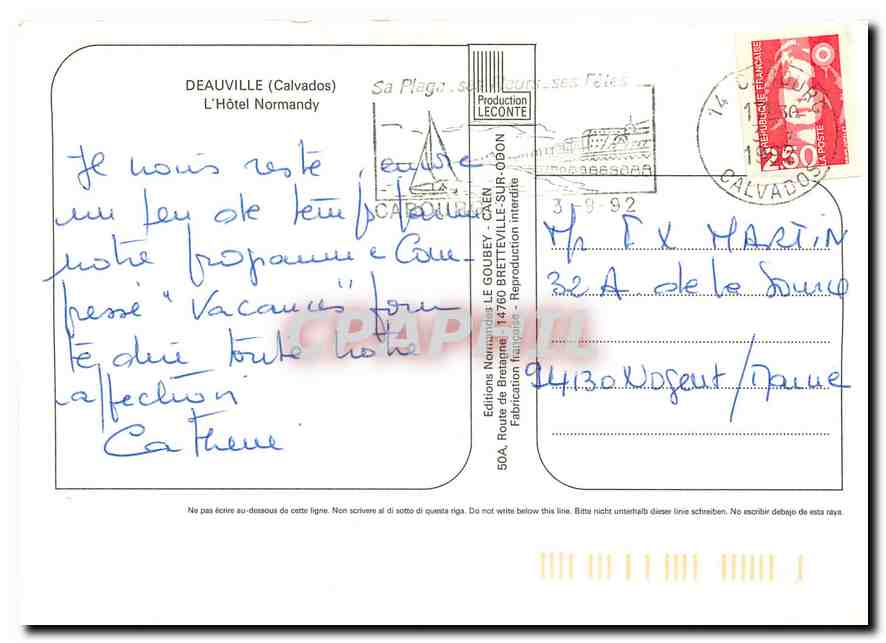 DEAUVILLE (Calvados)
L'Hôtel Normandy
Je nous reste encore
un peu de temps
notre programme Com-
pressé "Vacances" pour
te dire toute notre
affection
Sa Plage ses Fleurs ses Fêtes
CABOURG
3-9-92
Production
LECONTE
14 CABOURG
1992
CALVADOS
RÉPUBLIQUE FRANÇAISE
2,50
LA POSTE
Editions Normandes LE GOUBEY - CAEN
50A, Route de Bretagne - 14760 BRETTEVILLE-SUR-ODON
Fabrication française - Reproduction interdite
MARTIN
32 A. de la Source
94130 Nogent/Marne
CPARAMA
Ne pas écrire au-dessous de cette ligne. Non scrivere al di sotto di questa riga. Do not write below this line. Bitte nicht unterhalb dieser linie schreiben. No escribir debajo de esta raya.